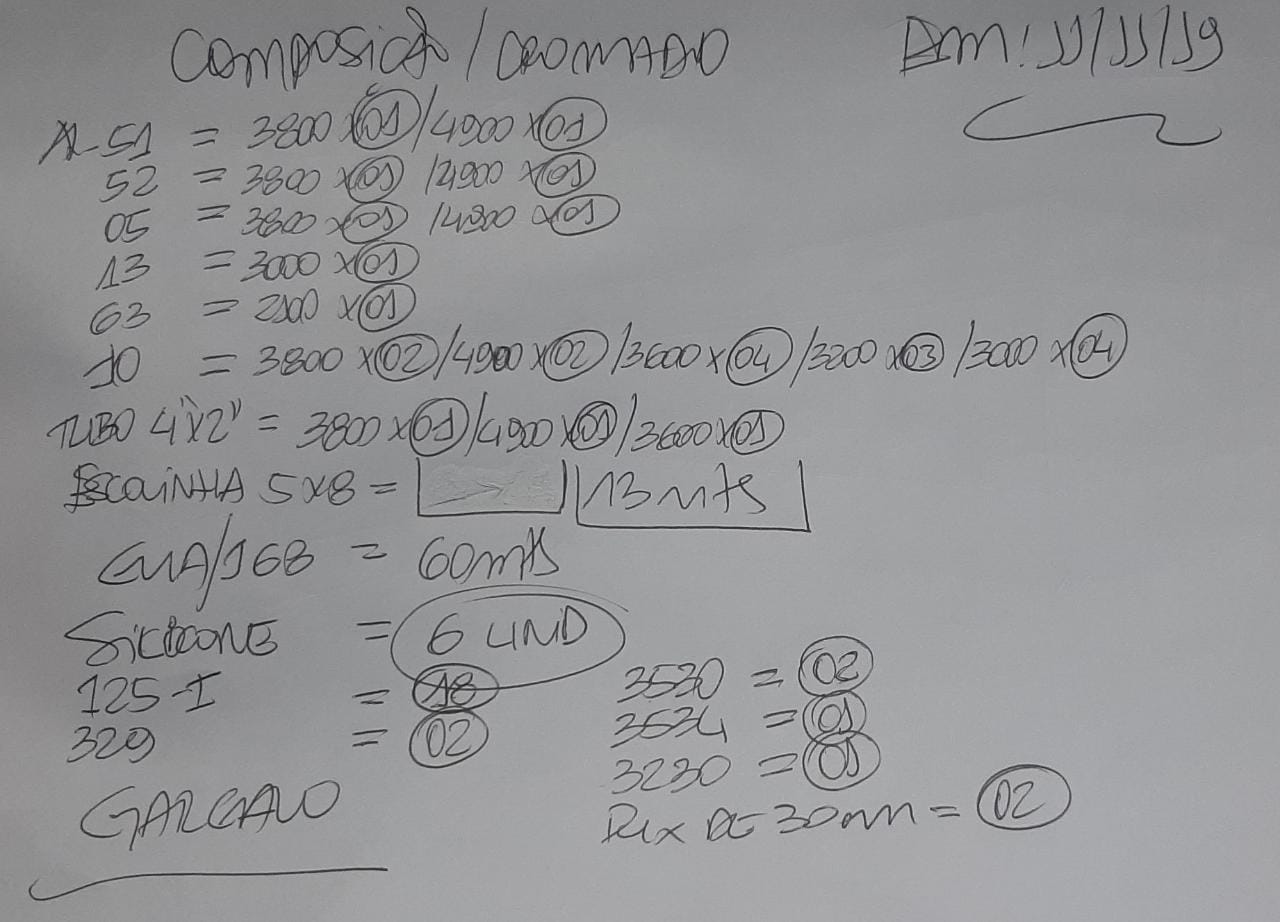 COMPOSIÇÃO / CROMADO
Em: 11/11/19
AL-51 = 3800 x 01 / 4900 x 01
52 = 3800 x 01 / 4900 x 01
05 = 3800 x 01 / 4900 x 01
13 = 3000 x 01
63 = 2100 x 01
10 = 3800 x 02 / 4900 x 02 / 3600 x 04 / 3200 x 03 / 3000 x 04
TUBO 4"x2" = 3800 x 01 / 4900 x 01 / 3600 x 01
ESCOVINHA 5x8 = 13 mts
GUA/168 = 60mts
SILICONE = 6 UND
125-I = 18
329 = 02
GARGALO
3530 = 02
3534 = 01
3230 = 01
DE 30mm = 02